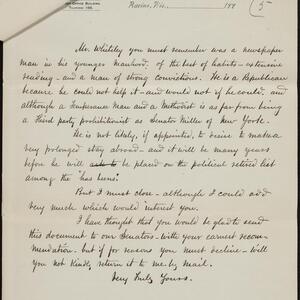 Office Building
Racine, Wis. 189
(5
Mr. Whitely you must remember was a newspaper
man in his younger manhood, of the best of habits - extensive
reading - and a man of strong convictions. He is a Republican
because he could not help it - and would not if he could, and
although a Temperance man and a Methodist is as far from being
a Third party prohibitionist as Senator Miller of New York.
He is not likely, if appointed, to desire to make a
very prolonged stay abroad - and it will be many years
before he will be placed on the political retired list
among the "has beens."
But I must close - although I could add
very much which would interest you.
I have thought that you would be glad to send
this document to our Senators - with your earnest recom-
mendation - but if for reasons you must decline - will
you not kindly return it to me by mail.
Very Truly Yours.